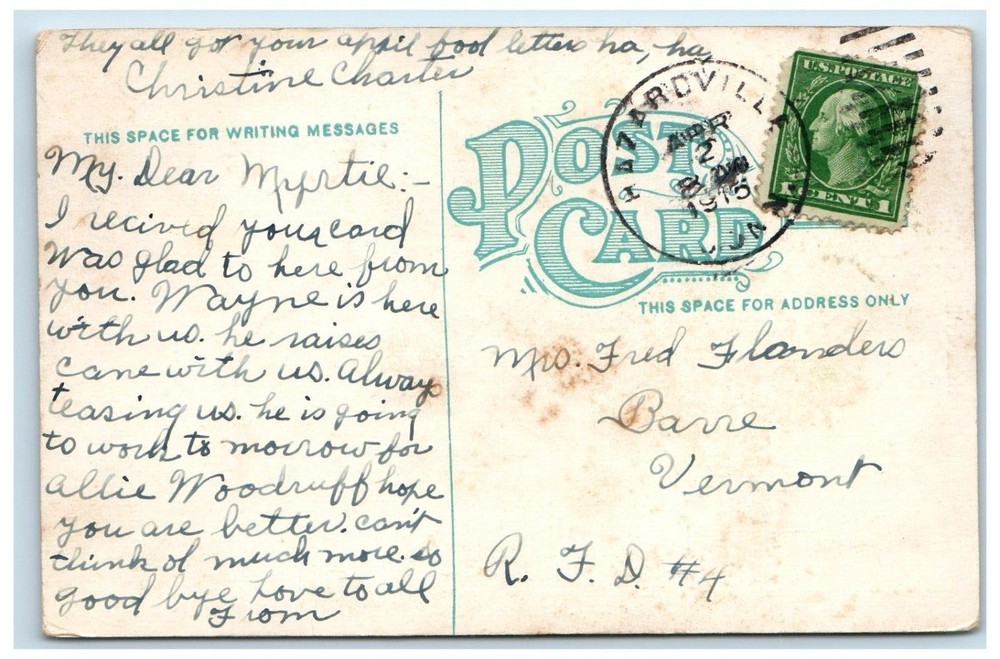 They all got your april fool letters ha, ha,
Christine Charter
THIS SPACE FOR WRITING MESSAGES
My. Dear Myrtie:-
I recived your card
was glad to here from
you. Wayne is here
with us. he raises
cane with us. Always
teasing us. he is going
to work to morrow for
Allie Woodruff hope
you are better. can't
think of much more. so
good bye Love to all
From
POST CARD
HAZARDVILLE
APR
2
8 AM
1915
CONN.
U.S. POSTAGE
1 CENT 1
THIS SPACE FOR ADDRESS ONLY
Mrs. Fred Flanders
Barre
Vermont
R. F. D. #4